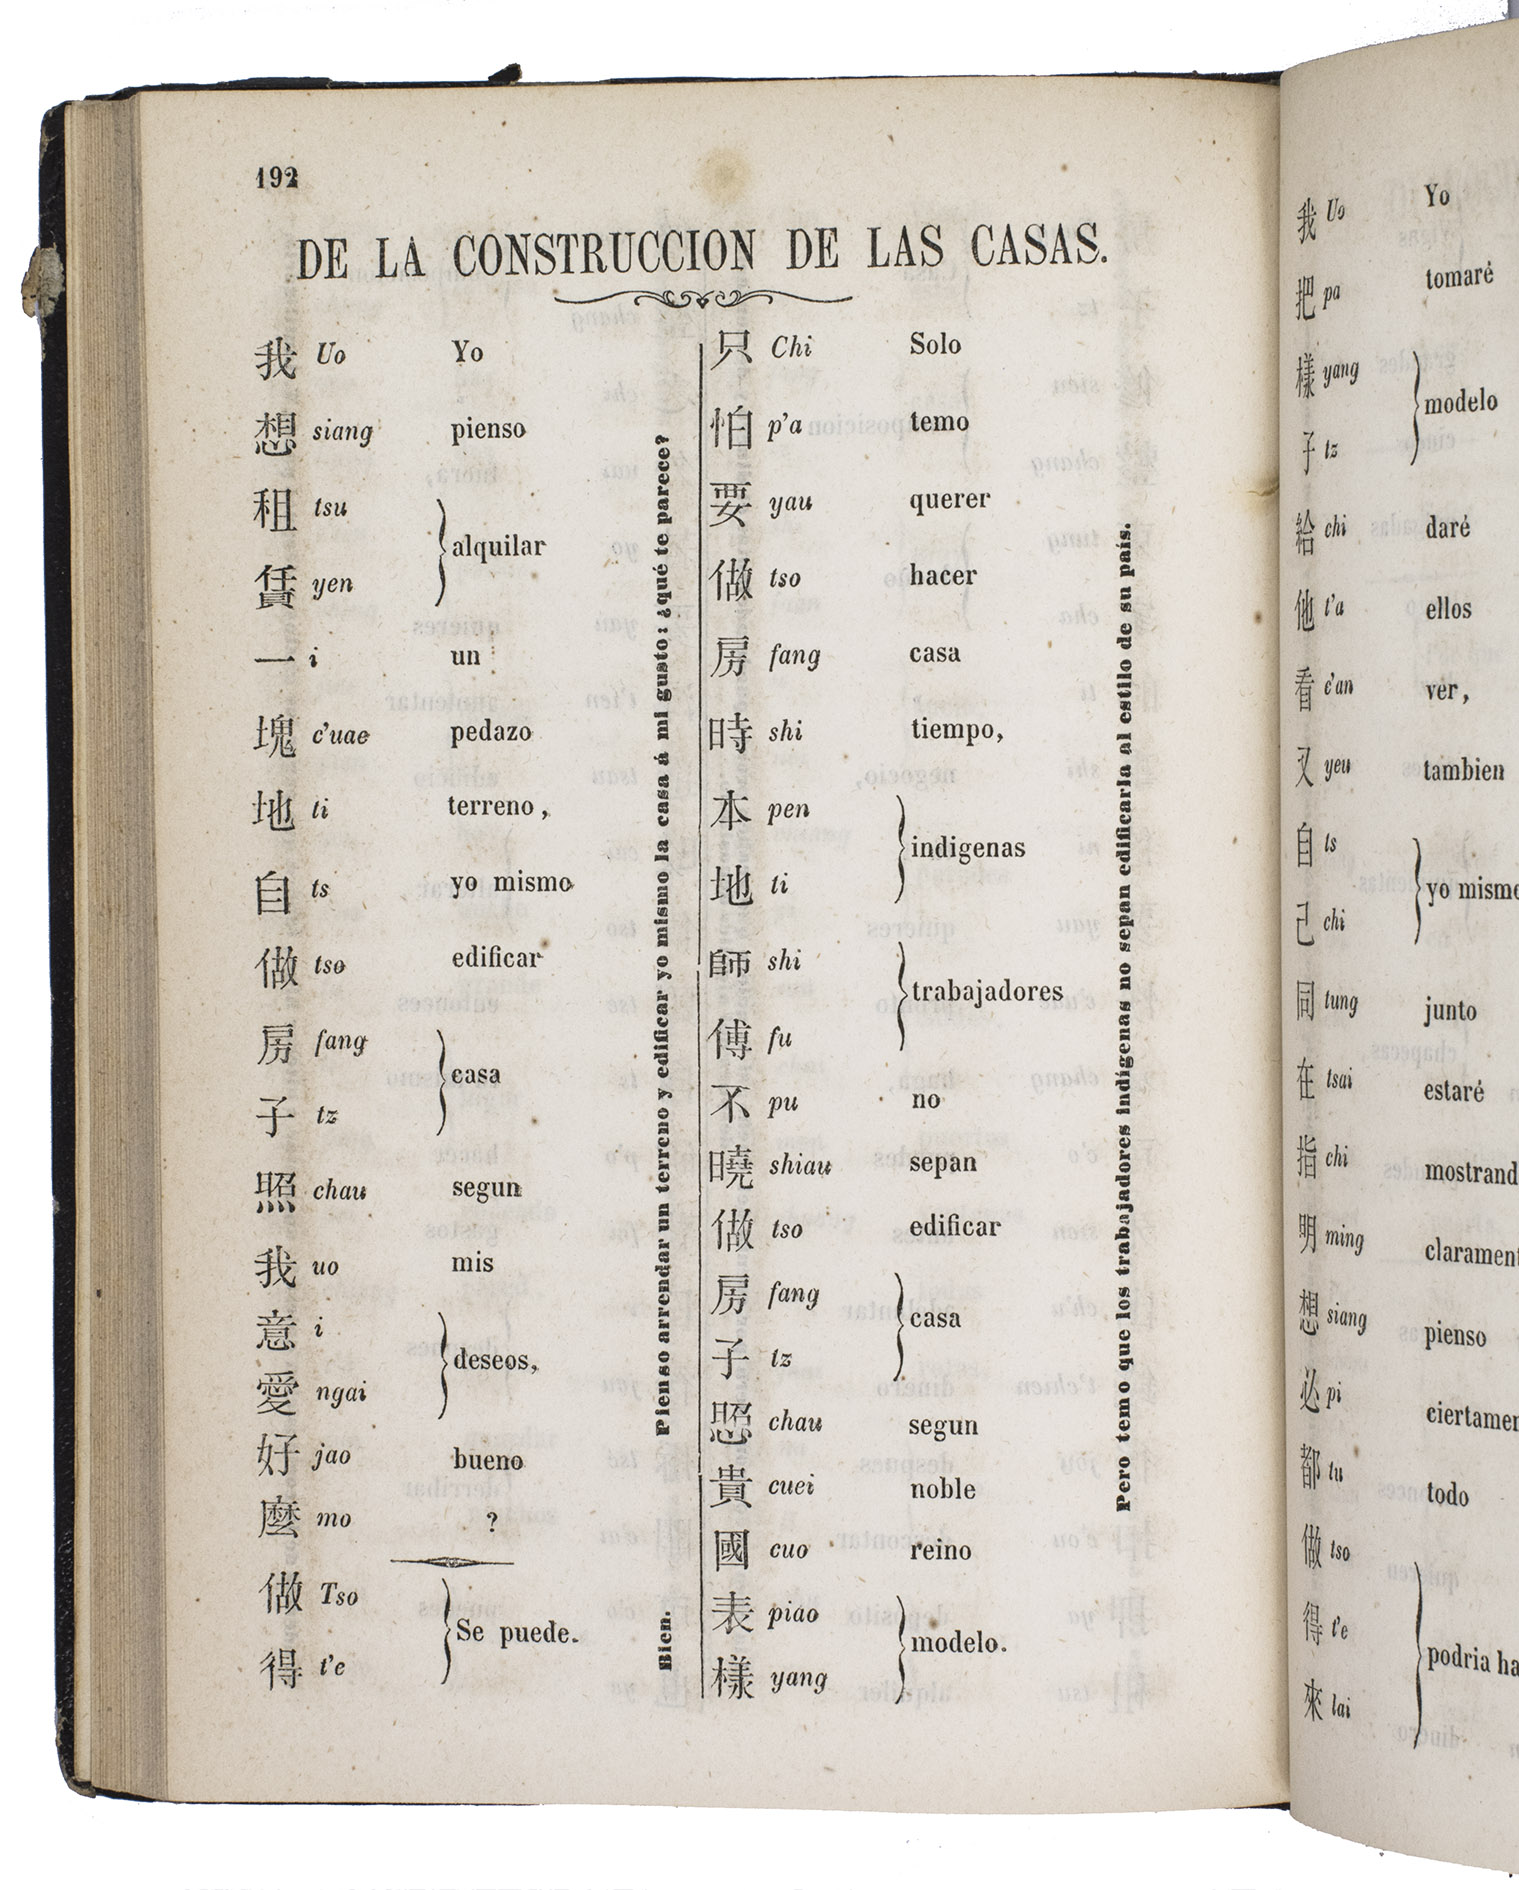 192
DE LA CONSTRUCCION DE LAS CASAS.
我 Uo Yo
想 siang pienso
租 tsu
賃 yen
alquilar
一 i un
塊 c'uae pedazo
地 ti terreno,
自 ts yo mismo
做 tso edificar
房 fang
子 tz
casa
照 chau segun
我 uo mis
意 i
愛 ngai
deseos,
好 jao bueno
麼 mo ?
做 Tso
得 t'e
Se puede.
Pienso arrendar un terreno y edificar yo mismo la casa á mi gusto: ¿qué te parece?
Bien.
只 Chi Solo
怕 p'a temo
要 yau querer
做 tso hacer
房 fang casa
時 shi tiempo,
本 pen
地 ti
indigenas
師 shi
傅 fu
trabajadores
不 pu no
曉 shiau sepan
做 tso edificar
房 fang
子 tz
casa
照 chau segun
貴 cuei noble
國 cuo reino
表 piao
樣 yang
modelo.
Pero temo que los trabajadores indígenas no sepan edificarla al estilo de su país.
我 Uo Yo
把 pa tomaré
樣 yang
子 tz
modelo
給 chi daré
他 t'a ellos
看 c'an ver,
又 yeu tambien
自 ts
己 chi
yo mismo
同 tung junto
在 tsai estaré
指 chi mostrand
明 ming clarament
想 siang pienso
必 pi ciertamen
都 tu todo
做 tso
得 t'e
來 lai
podria ha